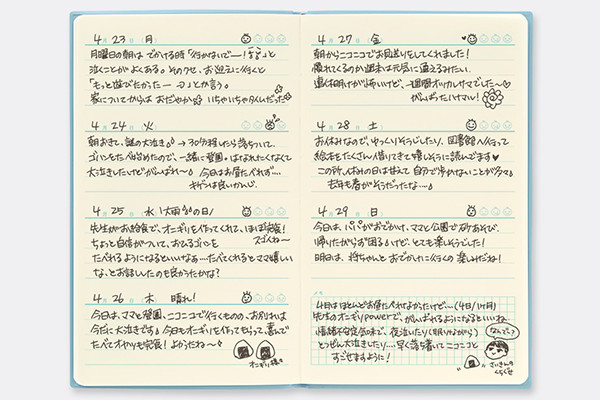 4月 23 月
月曜日の朝は でかける時「行かないでー!」と
泣くことがよくある。そのクセ、お迎えに行くと
「もっと遊びたかったー」とか言う。
家についてからは おだやか いちゃいちゃタイムだった
4月 24 火
朝おきて、謎の大泣き → 30分程したら落ちついて、
ゴハンをたべ始めたので、一緒に登園。はなれたくなくて
大泣きしたけどがんばれ〜 今日はお昼たべれず…
キゲンは良いかんじ。
4月 25 水 (大雨の日)
先生がお給食で、オニギリを作ってくれて、ほぼ完食!
スゴイね〜
ちょっと自信がついて、おひるゴハンを
たべれるようになるといいなぁ…たべてくれるとママ嬉しい
な、とお話ししたのも良かったかな?
4月 26 木 晴れ!
今日は、ママと登園、ニコニコで行くものの、お別れは
今だに大泣きです。今日もオニギリを作ってもらって、喜んで
たべてオヤツも完食! よかったね〜
オニギリ様々
4月 27 金
朝からニコニコでお見送りをしてくれました!
疲れてくるのか週末は元気に通えるみたい。
週明けが怖いけど、一週間オツカレサマでした〜
がんばったハナマル!
4月 28 土
お休みなので、ゆっくりそうじしたり、図書館へ行って
絵本をたくさん借りてきて嬉しそうに読んでます♥
この所、休みの日は甘えて 自分で歩かないことが多々
去年も春がそうだったな…
4月 29 日
今日は、パパがおでかけで、ママと公園であそびあそび、
帰りたがらず困る けど、とても楽しそうでした!
明日は、将ちゃんと おでかけに行くの 楽しみだね!
4月はほとんどお昼たべれなかったけど…(4日/1ヶ月)
先生のオニギリpowerで、がんばれるようになるといいね
情緒不安定気味で、夜泣いたり(明け方から)
とつぜん大泣きしたり…早く落ち着いてニコニコと
すごせますように!
なんで〜?
さいきんの
くちぐせ